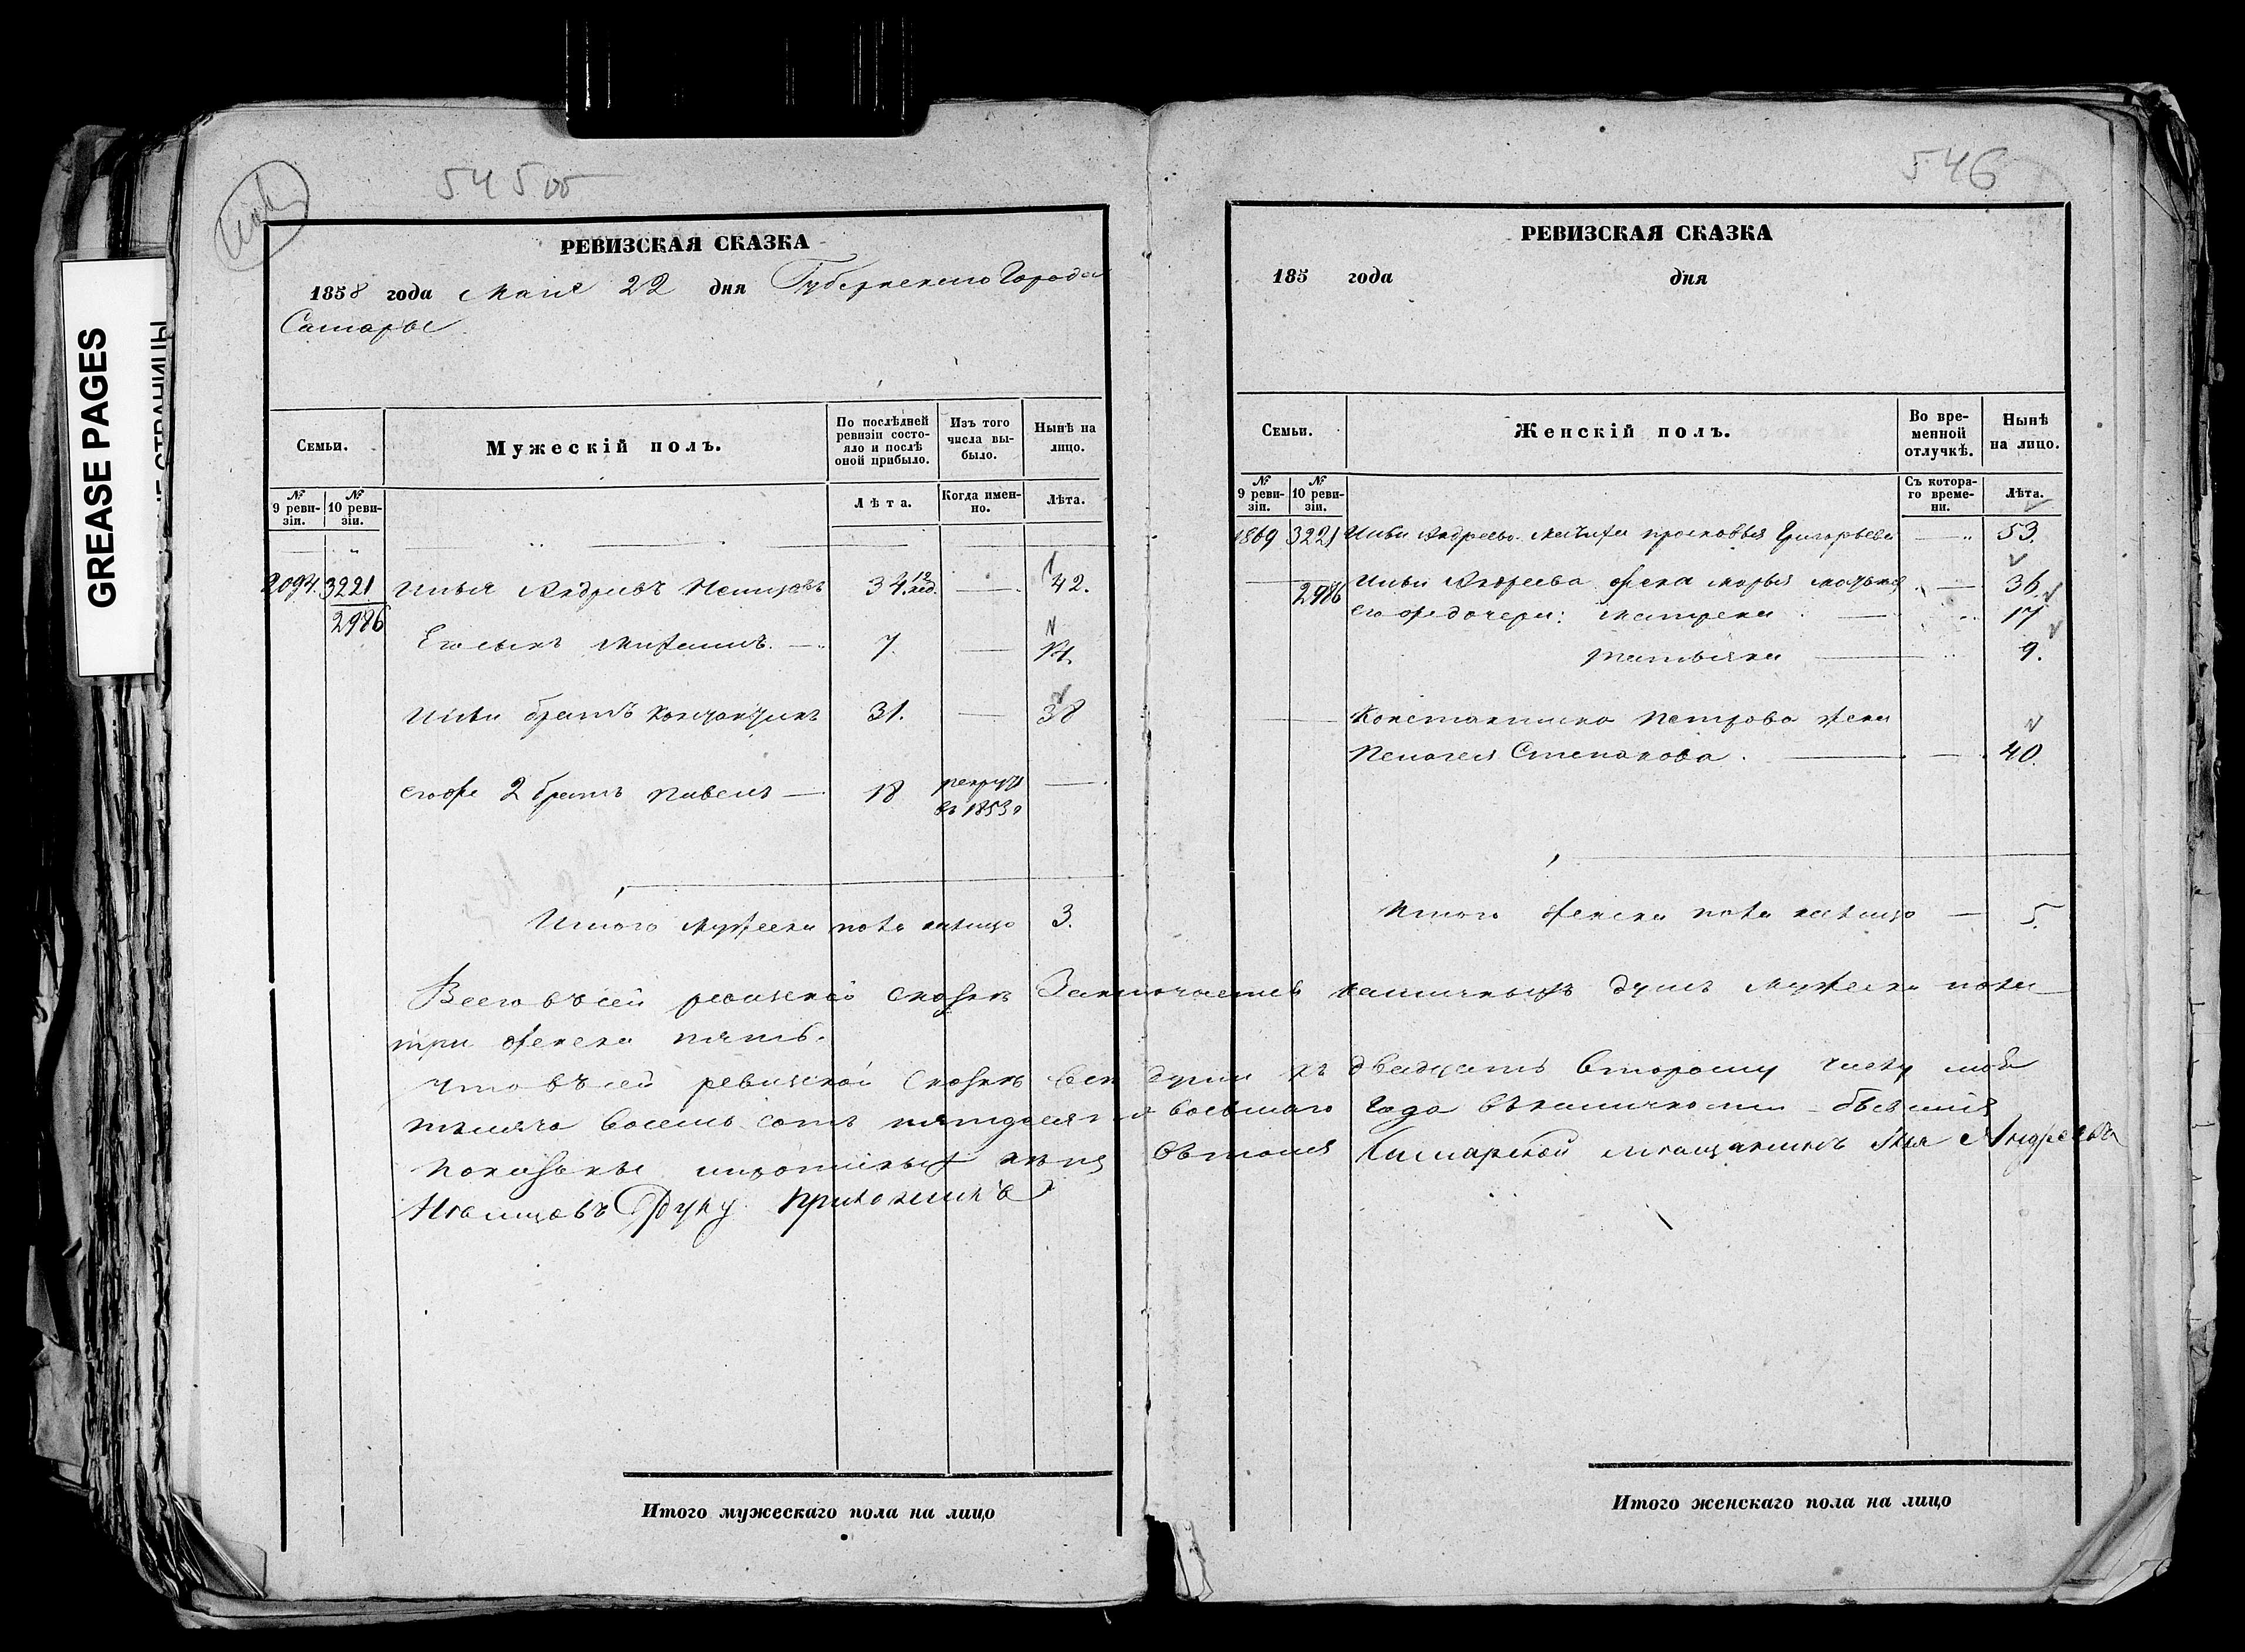 GREASE PAGES
545 об
РЕВИЗСКАЯ СКАЗКА
1858 года Мая 22 дня Губернскаго Города
Самары
Семьи.
Мужескій полъ.
По послѣдней ревизіи состояло и послѣ оной прибыло.
Изъ того числа выбыло.
Нынѣ на лицо.
№ 9 ревизіи.
№ 10 ревизіи.
Лѣта.
Когда именно.
Лѣта.
3221 Илья Андреевъ 34. 42.
2986
Его сынъ 7
Ильи братъ 31. 38
его же 2 братъ Павелъ 18 рекрут
въ 1853
Итого мужеска пола налицо 3.
546
РЕВИЗСКАЯ СКАЗКА
185 года дня
Семьи.
Женскій полъ.
Во временной отлучкѣ.
Нынѣ на лицо.
№ 9 ревизіи.
№ 10 ревизіи.
Съ котораго времени.
Лѣта.
1869 3221 Ильи Андреева мачиха Просковья Григорьева 53.
2986 Ильи Андреева жена Марья 36
его же дочери: Матрена 17
Татьяна 9.
Константина Петрова жена
Пелагея Степанова 40
Итого женска пола налицо 5.
Всего въ сей ревизской сказкѣ Заключается наличныхъ душъ мужеска пола
три женска пять.
Что въ сей ревизской сказкѣ все души къ двадцать второму числу мая
тысяча восемь сотъ пятдесят восьмаго Года въ наличности бывшия
показаны въ томъ Самарской мещанинъ Илья Андреевъ
руку приложилъ
Итого мужескаго пола на лицо
Итого женскаго пола на лицо